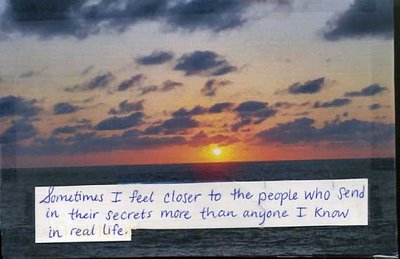 Sometimes I feel closer to the people who send
in their secrets more than anyone I know
in real life.